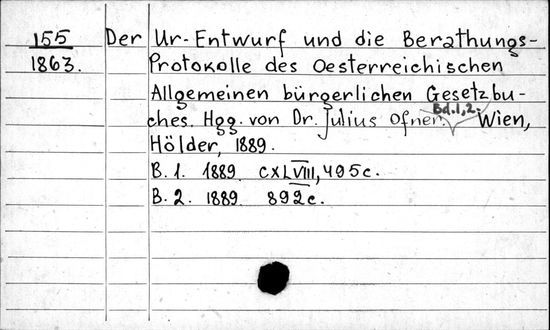 155 Der Ur-Entwurf und die Berathungs-
1863. Protokolle des Oesterreichischen
Allgemeinen bürgerlichen Gesetzbu-
Bd.1,2.
ches. Hgg. von Dr. Julius Ofner. Wien,
Hölder, 1889.
B. 1. 1889. CXLVIII, 495c.
B. 2. 1889. 892c.